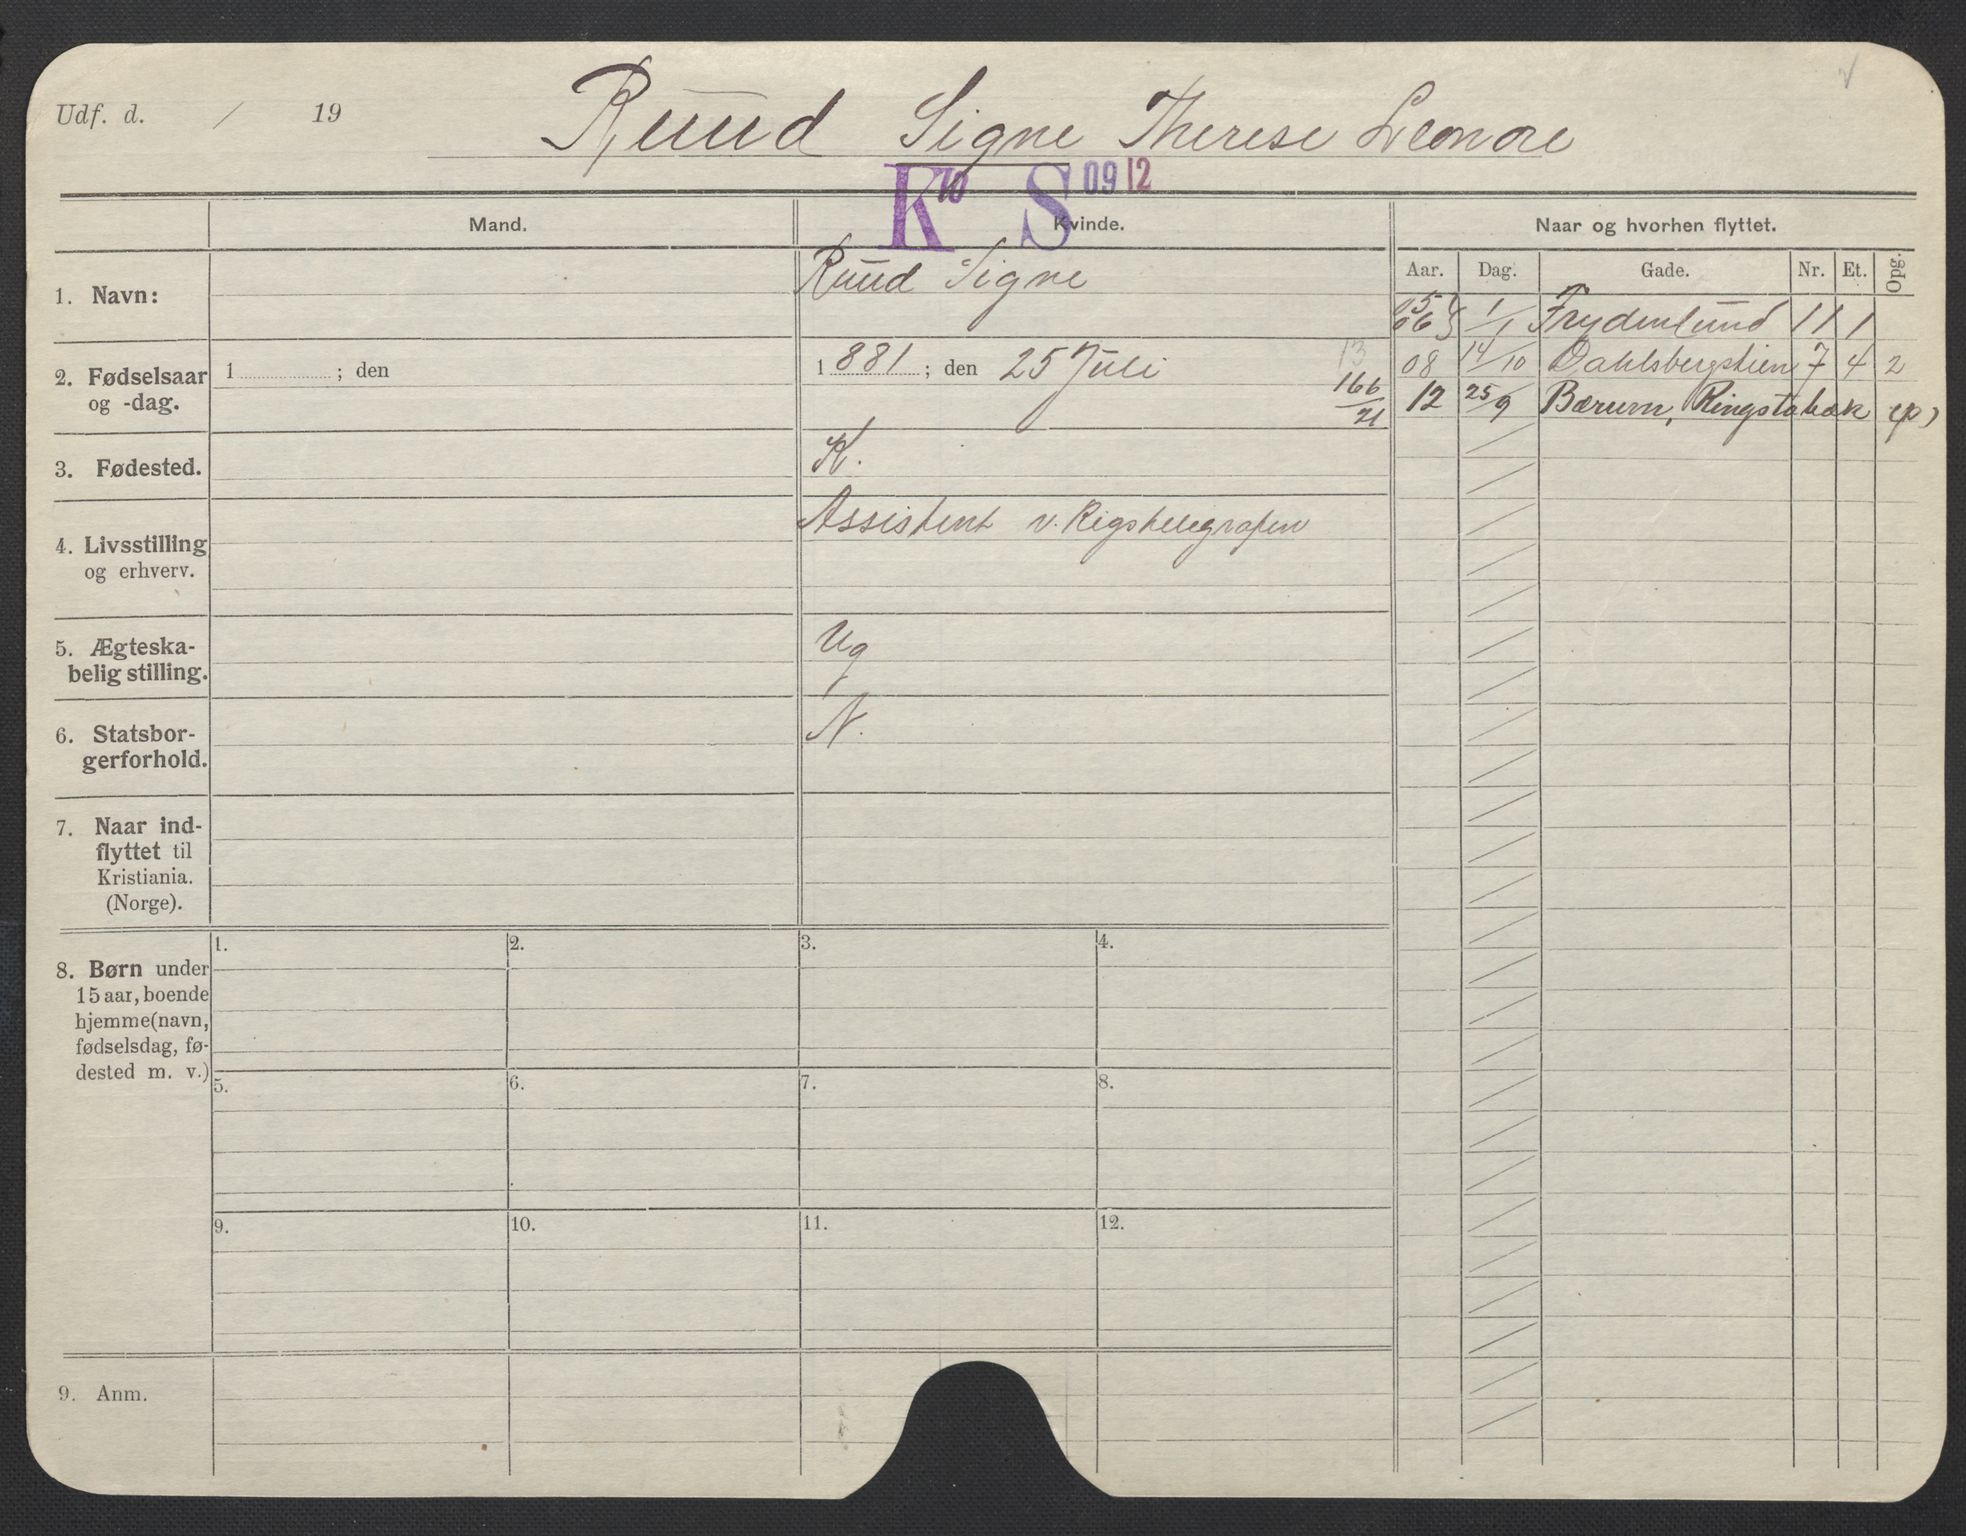 Udf. d. / 19
Ruud Signe Therese Leonore
K 10 S 09 12
Mand.
Kvinde.
Naar og hvorhen flyttet.
Aar. Dag. Gade. Nr. Et. Opg.
1. Navn:
Ruud Signe
05 06 } 1/1 Frydenlund 11 1
2. Fødselsaar og -dag.
1 ; den
1881 ; den 25 Juli
13
166/21
08 14/10 Dahlsbergstien 7 4 2
12 25/9 Bærum, Ringstabæk (p)
3. Fødested.
K.
4. Livsstilling og erhverv.
Assistent v. Rigstelegrafen
5. Ægteska-
belig stilling.
Ug
6. Statsbor-
gerforhold.
N.
7. Naar ind-
flyttet til
Kristiania.
(Norge).
8. Børn under
15 aar, boende
hjemme (navn,
fødselsdag, fø-
dested m. v.)
1. 2. 3. 4.
5. 6. 7. 8.
9. 10. 11. 12.
9. Anm.